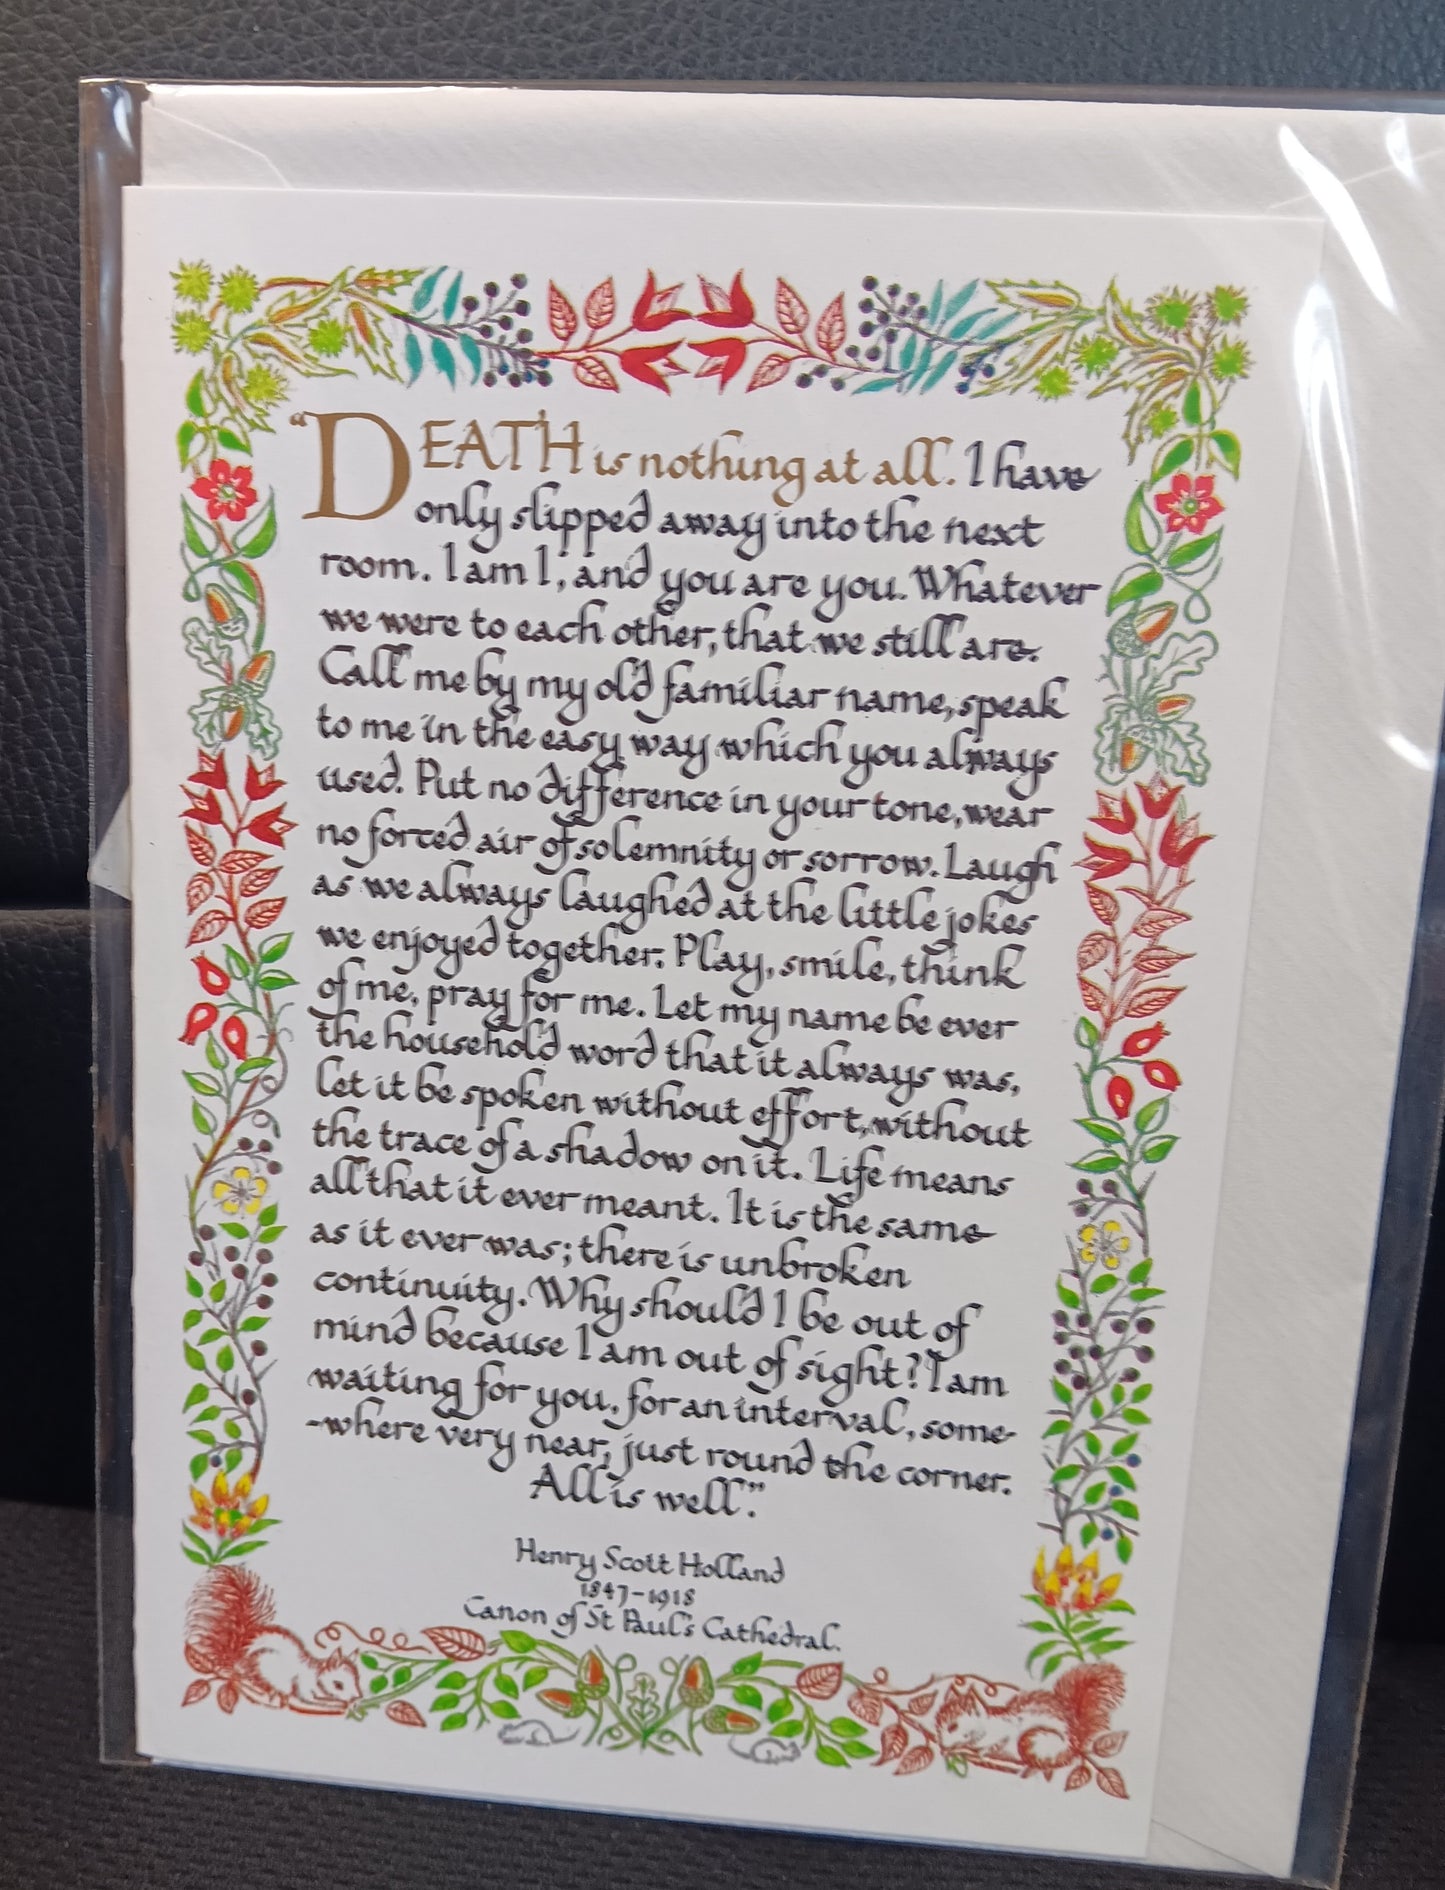 “DEATH is nothing at all. I have
only slipped away into the next
room. I am I, and you are you. Whatever
we were to each other, that we still are.
Call me by my old familiar name, speak
to me in the easy way which you always
used. Put no difference in your tone, wear
no forced air of solemnity or sorrow. Laugh
as we always laughed at the little jokes
we enjoyed together. Play, smile, think
of me, pray for me. Let my name be ever
the household word that it always was,
let it be spoken without effort, without
the trace of a shadow on it. Life means
all that it ever meant. It is the same
as it ever was; there is unbroken
continuity. Why should I be out of
mind because I am out of sight? I am
waiting for you, for an interval, some-
-where very near, just round the corner.
All is well”.
Henry Scott Holland
1847-1918
Canon of St Paul's Cathedral.